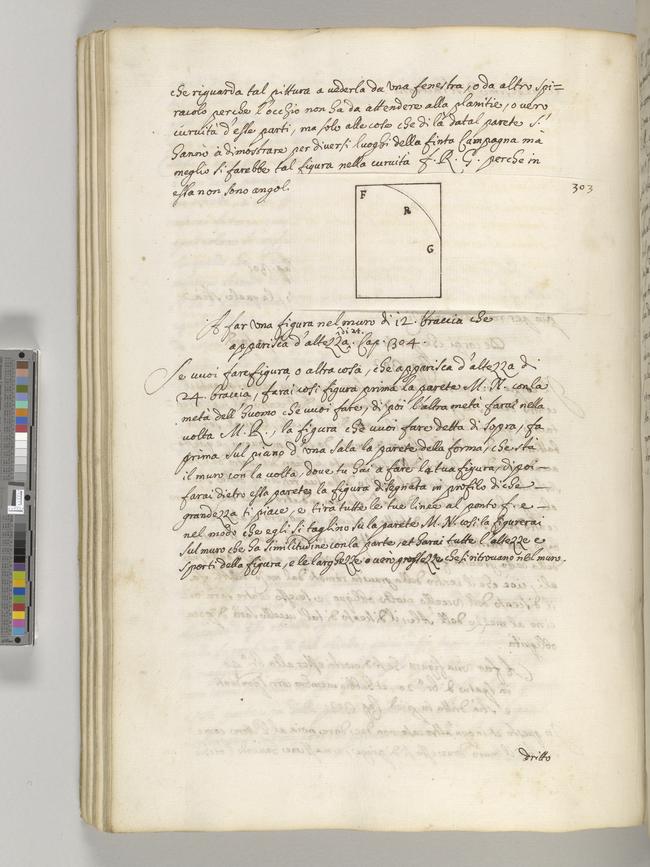 che riguarda tal pittura a vederla da una fenestra, o da altro spi=
racolo perche l'occhio non ha da attendere alla planitie, o vero
curuità d'esse parti, ma solo alle cose che di là da tal parete si
hanno à dimostrare per diversi luoghi della finta Campagna ma
meglio si farebbe tal figura nella curuità F. R. G. perche in
essa non sono angoli.
303
F
R
G
A far una figura nel muro di 12. braccia che
apparisca d'altezza di 24. Cap. 304.
Se vuoi fare figura o altra cosa, che apparisca d'altezza di
24. braccia, farai cosi figura prima la parete M. N. con la
metà dell'huomo che vuoi fare, di poi l'altra metà farai nella
volta M. R., la figura che vuoi fare detta di sopra, fa
prima sul piano d'una sala la parete della forma, che stà
il muro con la volta, dove tu hai a fare la tua figura, di poi
farai dietro essa parete la figura disegnata in profilo di che
grandezza ti piace, e tirà tutte le tue linee al ponto f. e
nel modo che egli si taglino su la parete M. N. cosi la figurerai
sul muro che ha similitudine con la parte, et harai tutte l'altezze e
sporti della figura, e le larghezze o vero grossezze che si ritrovano nel muro
dritto